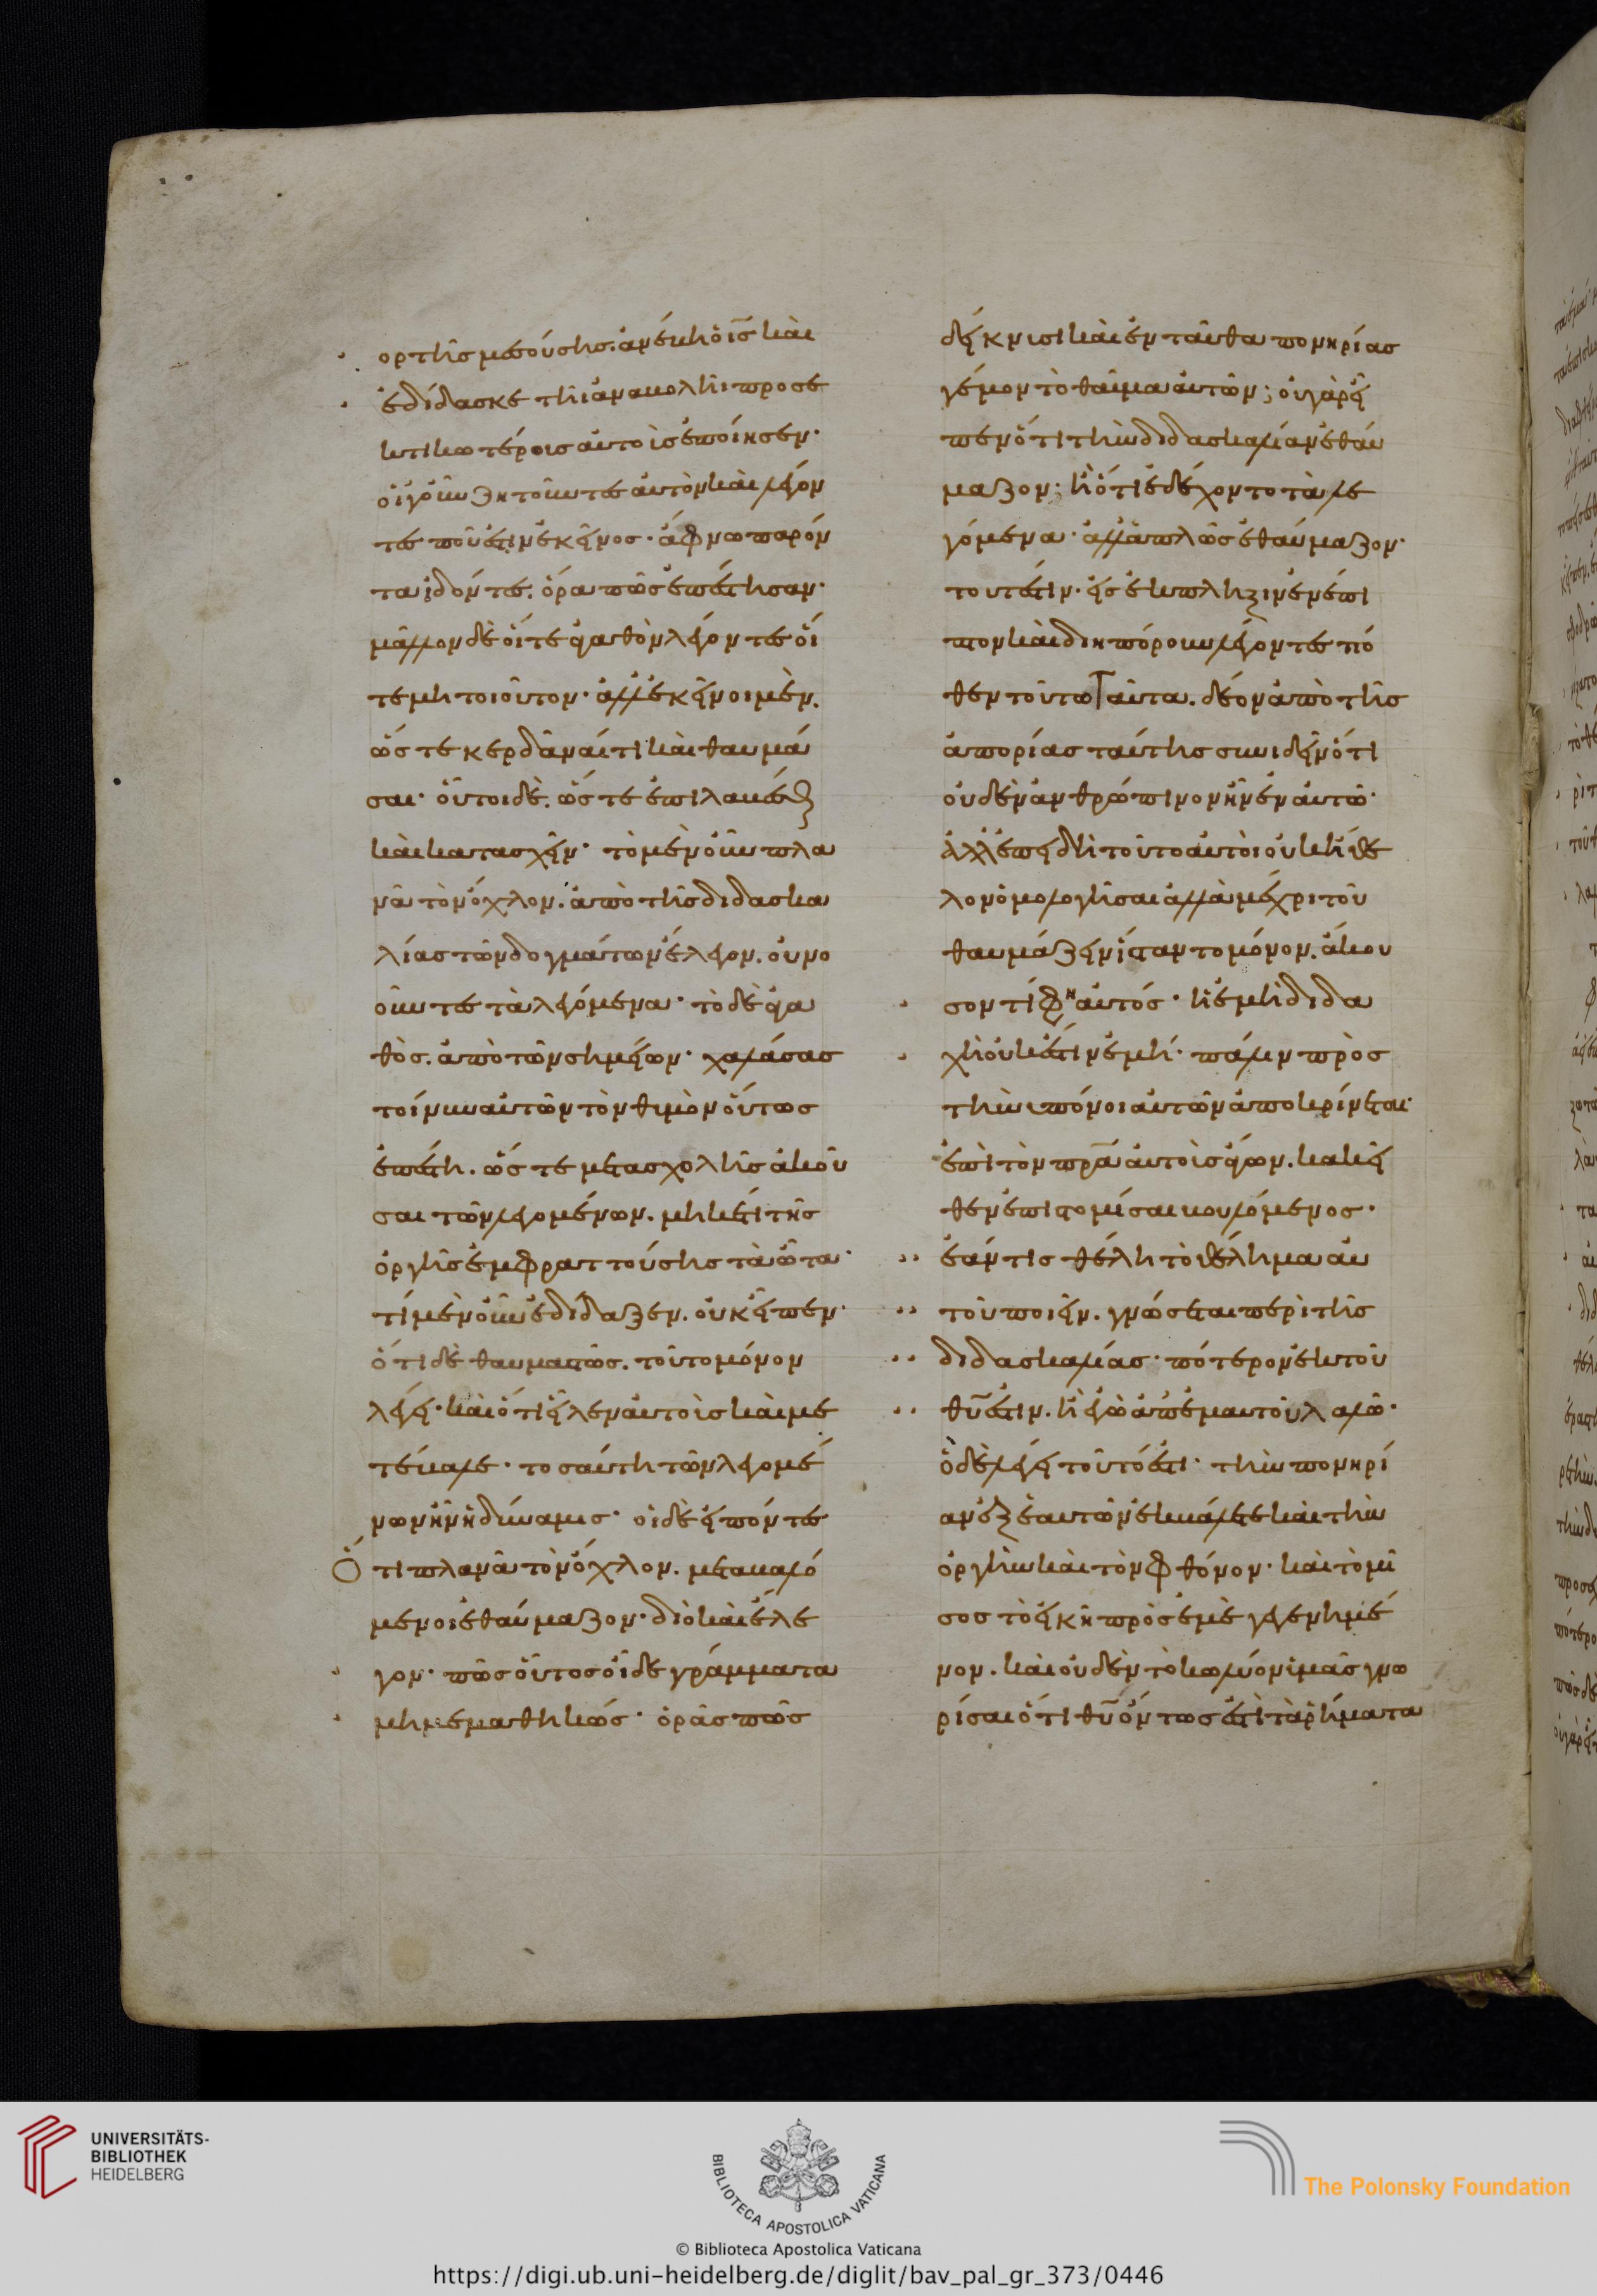 ορτῆς μεσούσης. ἀνέβη ὁ ις καὶ
ἐδίδασκε τῆι ἀναβολῆι προσε
κτικωτέροις αὐτοῖς ἐποίησεν·
οἱ γοῦν ζητοῦντες αὐτὸν καὶ λέγον
τες ποῦ ἐστιν ἐκεῖνος· ἄφνω παρόν
τα ἰδόντες. ὅρα πῶς ἐπέστησαν·
μᾶλλον δὲ οἵ τε ἀγαθὸν λέγοντες οἵ
τε μὴ τοιοῦτον· ἀλλ' ἐκεῖνοι μὲν.
ὥστε κερδᾶναί τι καὶ θαυμά
σαι· οὗτοι δὲ. ὥστε ἐπιλαβέσθ
καὶ κατασχεῖν· τὸ μὲν οὖν πλα
νᾶ τὸν ὄχλον. ἀπὸ τῆς διδασκα
λίας τῶν δογμάτων ἔλεγον. οὐ νο
οῦντες τὰ λεγόμενα· τὸ δὲ ἀγα
θὸς. ἀπὸ τῶν σημείων· χαλάσας
τοίνυν αὐτῶν τὸν θυμὸν οὕτως
ἐπέστη. ὥστε μετα σχολῆς ἀκοῦ
σαι τῶν λεγομένων. μηκέτι τῆς
ὀργῆς ἐμφραττούσης τὰ ὦτα·
τί μὲν οὖν ἐδίδαξεν. οὐκ εἶπεν·
ὅτι δὲ θαυμαστῶς. τοῦτο μόνον
λέγει· καὶ ὅτι εἷλεν αὐτοὺς καὶ με
τέβαλε· τοσαύτη τῶν λεγομέ
νων ἦν ἡ δύναμις· οἱ δὲ εἰπόντες
Ὅτι πλανᾶ τὸν ὄχλον. μεταβαλό
μενοι ἐθαύμαζον· διὸ καὶ ἔλε
γον· πῶς οὗτος οἶδε γράμματα
μὴ μεμαθηκώς· ὁρᾶς πῶς
δείκνυσι καὶ ἐνταῦθα πονηρίας
γέμον τὸ θαῦμα αὐτῶν; οὐ γὰρ εἶ
πεν ὅτι τὴν διδασκαλίαν ἐθαύ
μαζον; ἢ ὅτι ἐδέχοντο τὰ λε
γόμενα· ἀλλ' ἁπλῶς ἐθαύμαζον·
τουτέστιν· εἰς ἔκπληξιν ἐνέπι
πτον καὶ διηπόρουν λέγοντες πό
θεν τούτω ταῦτα. δέον ἀπὸ τῆς
ἀπορίας ταύτης συνιδεῖν ὅτι
οὐδὲν ἀνθρώπινον ἦν ἐν αὐτῶ·
ἀλλ' ἐπειδὴ τοῦτο αὐτοὶ οὐκ ἤθε
λον ὁμολογῆσαι ἀλλὰ μέχρι τοῦ
θαυμάζειν ἵσταντο μόνον. ἄκου
σον τί φη αὐτός· ἡ ἐμὴ διδα
χὴ οὐκ ἔστιν ἐμή· πάλιν πρὸς
τὴν ὑπόνοι αὐτῶν ἀποκρίνεται·
ἐπὶ τὸν πρα αὐτοὺς ἄγων. κακεῖ
θεν ἐπιστομίσαι βουλόμενος·
ἐάν τις θέλη τὸ θέλημα αὐ
τοῦ ποιεῖν. γνώσεται περὶ τῆς
διδασκαλίας· πότερον ἐκ τοῦ
θυ ἐστιν. ἢ ἐγὼ ἀπ' ἐμαυτοῦ λαλῶ·
ὃ δὲ λέγει τοῦτό ἐστι· τὴν πονηρί
αν ἐξ ἑαυτῶν ἐκβάλετε καὶ τὴν
ὀργὴν καὶ τὸν φθόνον· καὶ τὸ μῖ
σος τὸ εἰκῆ πρὸς ἐμὲ γεγενημέ
νον. καὶ οὐδὲν τὸ κωλύον ὑμᾶς γνω
ρίσαι ὅτι θυ ὄντως ἐστὶ τὰ ῥήματα
UNIVERSITÄTS-
BIBLIOTHEK
HEIDELBERG
BIBLIOTECA APOSTOLICA VATICANA
© Biblioteca Apostolica Vaticana
The Polonsky Foundation
https://digi.ub.uni-heidelberg.de/diglit/bav_pal_gr_373/0446